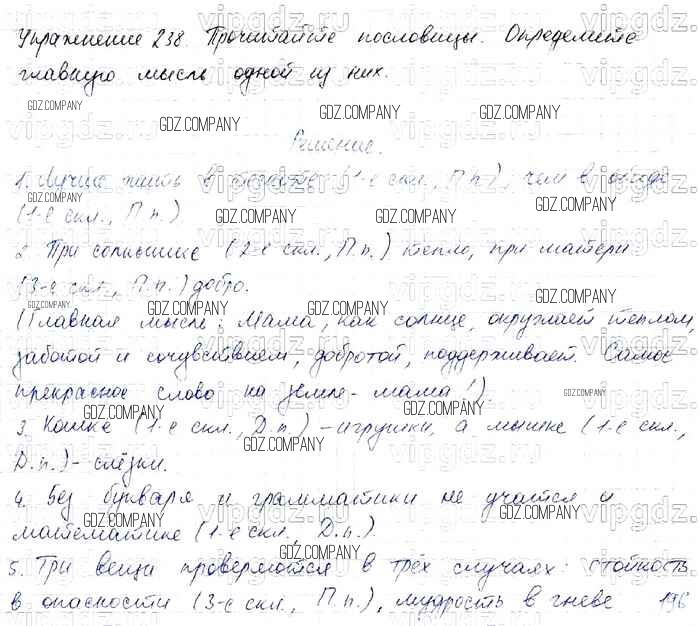 Упражнение 238. Прочитайте пословицы. Определите
главную мысль одной из них.
Решение.
1. Лучше жить в тесноте (1-е скл., П.п.), чем в обиде
(1-е скл., П.п.).
2. При солнышке (2-е скл., П.п.) тепло, при матери
(3-е скл., П.п.) добро.
(Главная мысль: Мама, как солнце, окружает теплом,
заботой и сочувствием, добротой, поддерживает. Самое
прекрасное слово на земле - мама!).
3. Кошке (1-е скл., Д.п.) - игрушки, а мышке (1-е скл.,
Д.п.) - слёзки.
4. Без букваря и грамматики не учатся и
математике (1-е скл., Д.п.).
5. Три вещи проверяются в трёх случаях: стойкость
в опасности (3-е скл., П.п.), мудрость в гневе 196